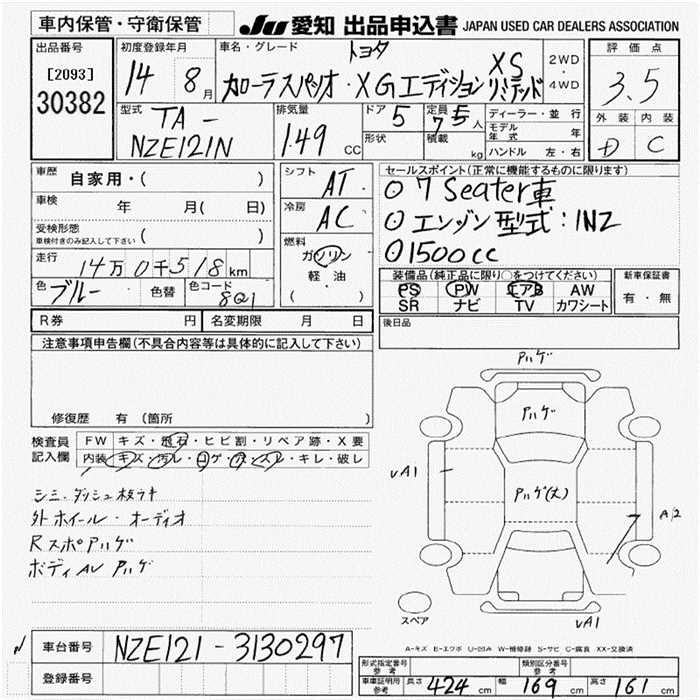 車内保管・守衛保管
JU 愛知 出品申込書 JAPAN USED CAR DEALERS ASSOCIATION
出品番号
[2093]
30382
初度登録年月
14 8月
車名・グレード
トヨタ
カローラスパシオ・XGエディション XS リミテッド
2WD
・
4WD
評価点
3.5
外装 内装
D C
型式
TA-
NZE121N
排気量
1.49 CC
ドア 5
形状
定員 7 人
積載 kg
ディーラー・並行
モデル年式 年
ハンドル 左・右
車歴
自家用・( )
車検 年 月( 日)
受検形態
車検付きのみ記入して下さい ( )
走行
14万0千518km
色 ブルー
色替
色コード 8Q1
シフト AT
冷房 AC
燃料
ガソリン
軽油
( )
セールスポイント(正常に機能するものに限ります)
○ 7 Seater車
○ エンジン型式:1NZ
○ 1500cc
装備品(純正品に限り○をつけてください)
PS PW エアB AW
SR ナビ TV カワシート
新車保証書
有・無
R券 円
名変期限 月 日
後日品
注意事項申告欄(不具合内容等は具体的に記入して下さい)
修復歴 有(箇所 )
検査員
記入欄
FW キズ・飛石・ヒビ割・リペア跡・X要
内装 キズ・汚レ・コゲ・穴・スレ・キレ・破レ
シミ・ダッシュ板ラキ
外ホイール・オーディオ
Rスポアハゲ
ボディAUアハゲ
アハゲ
アハゲ
アハゲ(大)
UA1
A12
UA1
スペア
A-キズ E-エクボ U-凹み W-補修跡 S-サビ C-腐食 XX-交換済
車台番号 NZE121-3130297
登録番号
形式指定番号
参考
類別区分番号
参考
車車証明用
参考
長さ 424 cm 幅 169 cm 高さ 161 cm